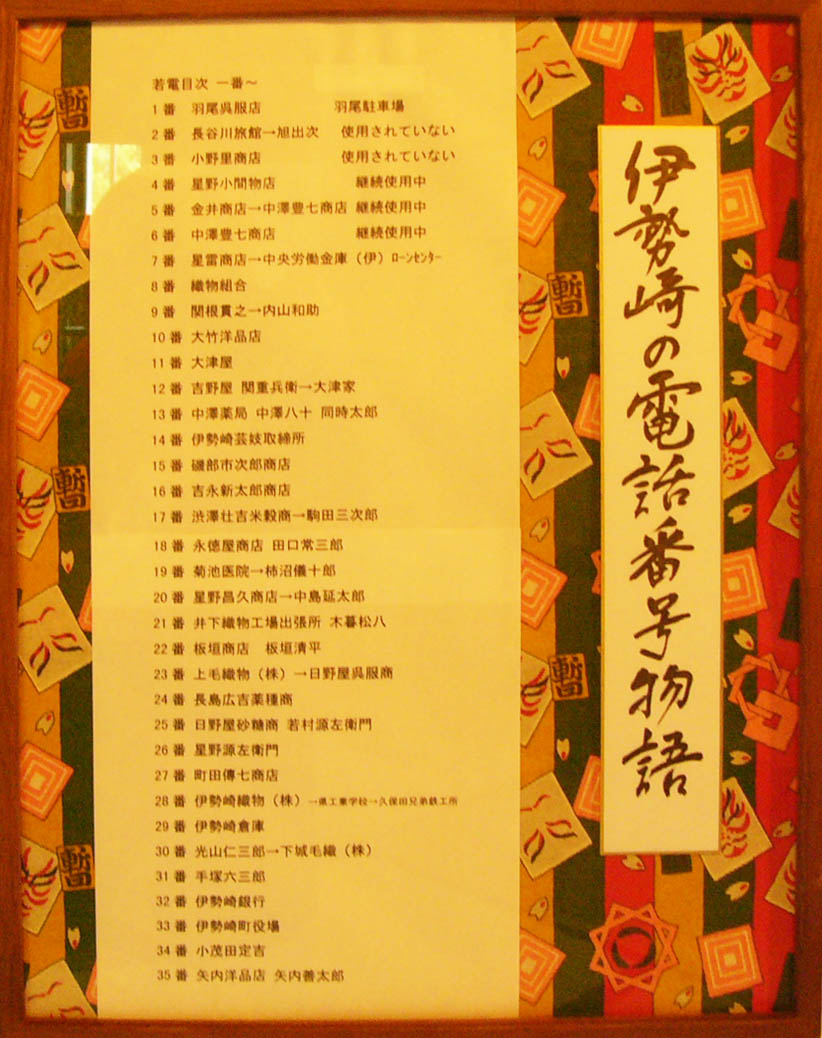 伊勢崎の電話番号物語
若電目次 一番～
1番 羽尾呉服店 羽尾駐車場
2番 長谷川旅館→旭出次 使用されていない
3番 小野里商店 使用されていない
4番 星野小間物店 継続使用中
5番 金井商店→中澤豊七商店 継続使用中
6番 中澤豊七商店 継続使用中
7番 星雷商店→中央労働金庫（伊）ﾛｰﾝｾﾝﾀｰ
8番 織物組合
9番 関根貫之→内山和助
10番 大竹洋品店
11番 大津屋
12番 吉野屋 関重兵衛→大津家
13番 中澤薬局 中澤八十 同時太郎
14番 伊勢崎芸妓取締所
15番 磯部市次郎商店
16番 吉永新太郎商店
17番 渋澤壮吉米穀商→駒田三次郎
18番 永徳屋商店 田口常三郎
19番 菊池医院→柿沼儀十郎
20番 星野昌久商店→中島延太郎
21番 井下織物工場出張所 木暮松八
22番 板垣商店 板垣清平
23番 上毛織物（株）→日野屋呉服商
24番 長島広吉薬種商
25番 日野屋砂糖商 若村源左衛門
26番 星野源左衛門
27番 町田傳七商店
28番 伊勢崎織物（株）→県工業学校→久保田兄弟鉄工所
29番 伊勢崎倉庫
30番 光山仁三郎→下城毛織（株）
31番 手塚六三郎
32番 伊勢崎銀行
33番 伊勢崎町役場
34番 小茂田定吉
35番 矢内洋品店 矢内善太郎
暫
暫
暫
暫
暫